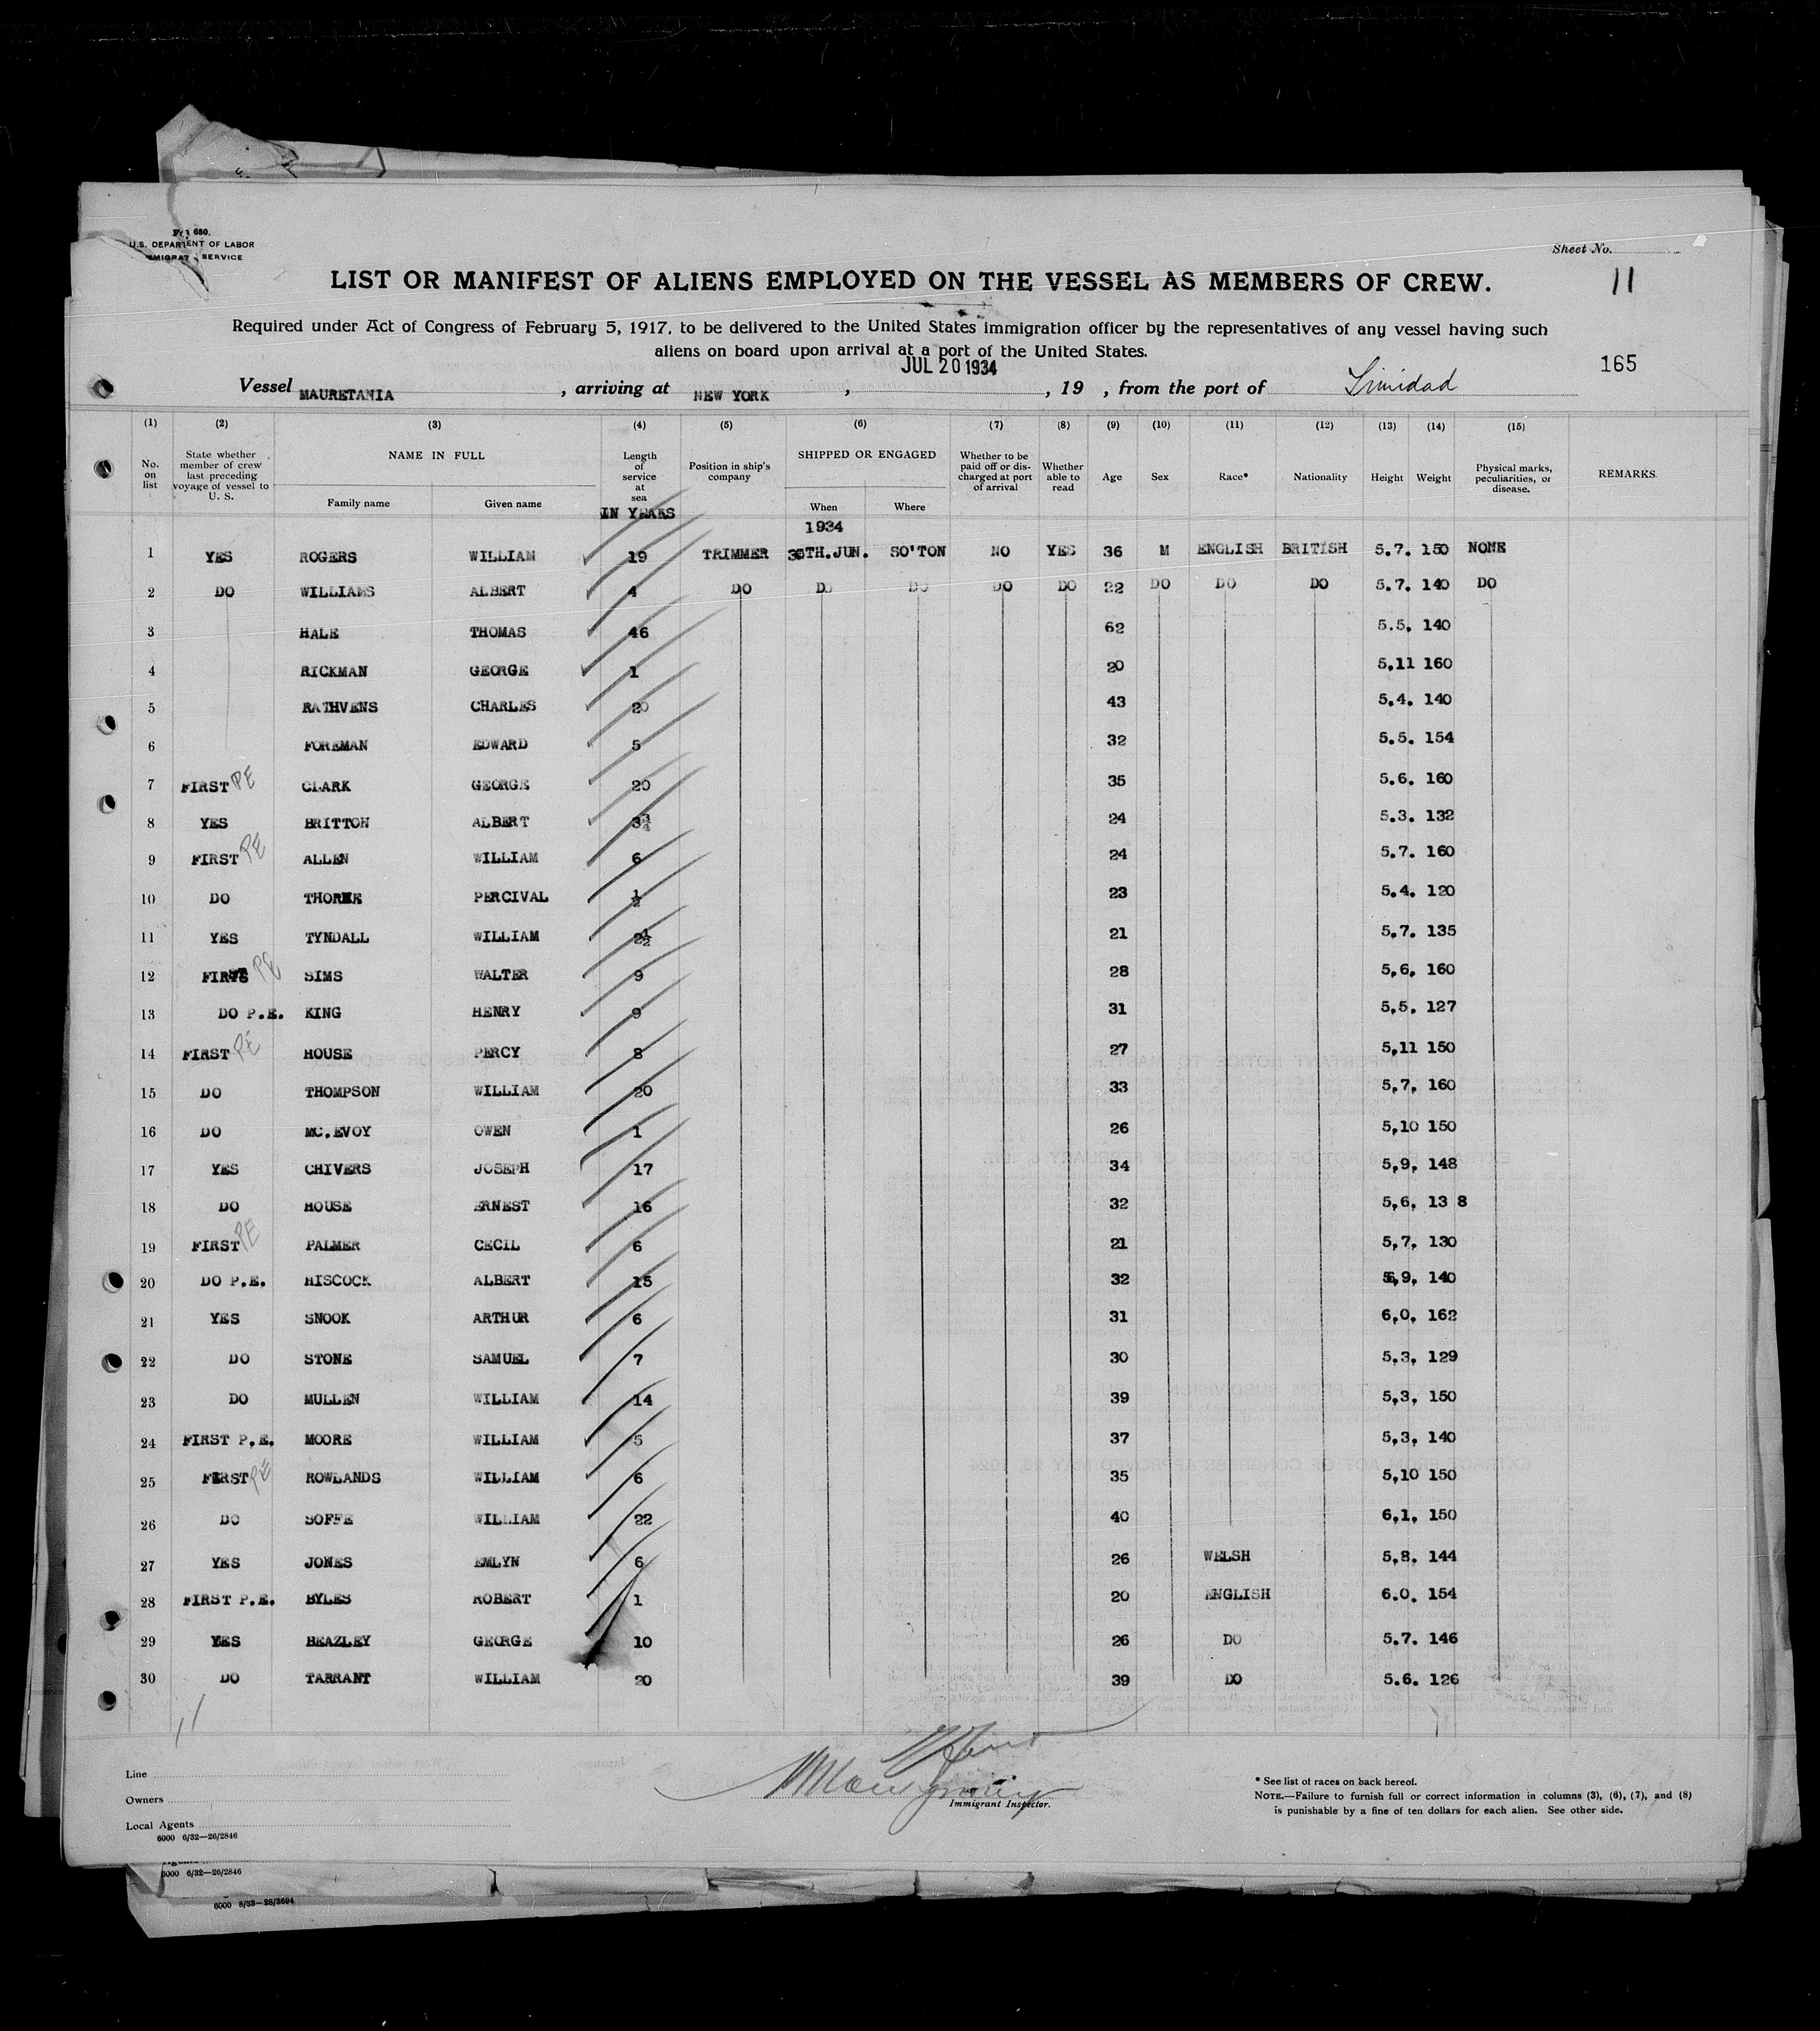 U.S. DEPARTMENT OF LABOR
SERVICE
Sheet No.
11
LIST OR MANIFEST OF ALIENS EMPLOYED ON THE VESSEL AS MEMBERS OF CREW.
Required under Act of Congress of February 5, 1917, to be delivered to the United States immigration officer by the representatives of any vessel having such
aliens on board upon arrival at a port of the United States.
JUL 20 1934
165
Vessel MAURETANIA, arriving at NEW YORK, , 19 , from the port of Trinidad
(1) (2) (3) (4) (5) (6) (7) (8) (9) (10) (11) (12) (13) (14) (15)
No. on list | State whether member of crew last preceding voyage of vessel to U. S. | NAME IN FULL | Family name | Given name | Length of service at sea IN YEARS | Position in ship's company | SHIPPED OR ENGAGED | When | Where | Whether to be paid off or discharged at port of arrival | Whether able to read | Age | Sex | Race* | Nationality | Height | Weight | Physical marks, peculiarities, or disease. | REMARKS
1934
1 YES ROGERS WILLIAM 19 TRIMMER 30TH.JUN. SO'TON NO YES 36 M ENGLISH BRITISH 5.7. 150 NONE
2 DO WILLIAMS ALBERT 4 DO DO DO DO DO 22 DO DO DO 5.7. 140 DO
3 HALE THOMAS 46 62 5.5. 140
4 RICKMAN GEORGE 1 20 5,11 160
5 RATHVENS CHARLES 20 43 5.4. 140
6 FOREMAN EDWARD 5 32 5.5. 154
7 FIRST PE CLARK GEORGE 20 35 5.6. 160
8 YES BRITTON ALBERT 3¾ 24 5.3. 132
9 FIRST PE ALLEN WILLIAM 6 24 5.7. 160
10 DO THORNE PERCIVAL ½ 23 5.4. 120
11 YES TYNDALL WILLIAM 2½ 21 5.7. 135
12 FIRST PE SIMS WALTER 9 28 5,6, 160
13 DO P.E. KING HENRY 9 31 5,5, 127
14 FIRST PE HOUSE PERCY 8 27 5,11 150
15 DO THOMPSON WILLIAM 20 33 5,7, 160
16 DO MC.EVOY OWEN 1 26 5,10 150
17 YES CHIVERS JOSEPH 17 34 5,9, 148
18 DO HOUSE ERNEST 16 32 5,6, 13 8
19 FIRST PE PALMER CECIL 6 21 5,7, 130
20 DO P.E. HISCOCK ALBERT 15 32 5,9, 140
21 YES SNOOK ARTHUR 6 31 6,0, 162
22 DO STONE SAMUEL 7 30 5,3, 129
23 DO MULLEN WILLIAM 14 39 5,3, 150
24 FIRST P.E. MOORE WILLIAM 5 37 5,3, 140
25 FIRST PE ROWLANDS WILLIAM 6 35 5,10 150
26 DO SOFFE WILLIAM 22 40 6,1, 150
27 YES JONES EMLYN 6 26 WELSH 5,8. 144
28 FIRST P.E. BYLES ROBERT 1 20 ENGLISH 6.0. 154
29 YES BEAZLEY GEORGE 10 26 DO 5.7. 146
30 DO TARRANT WILLIAM 20 39 DO 5.6. 126
11
Line
Owners
Local Agents
Immigrant Inspector.
* See list of races on back hereof.
NOTE.—Failure to furnish full or correct information in columns (3), (6), (7), and (8)
is punishable by a fine of ten dollars for each alien. See other side.
6000 6/32—26/2846
6000 6/32—26/2846
6000 8/33—28/3694